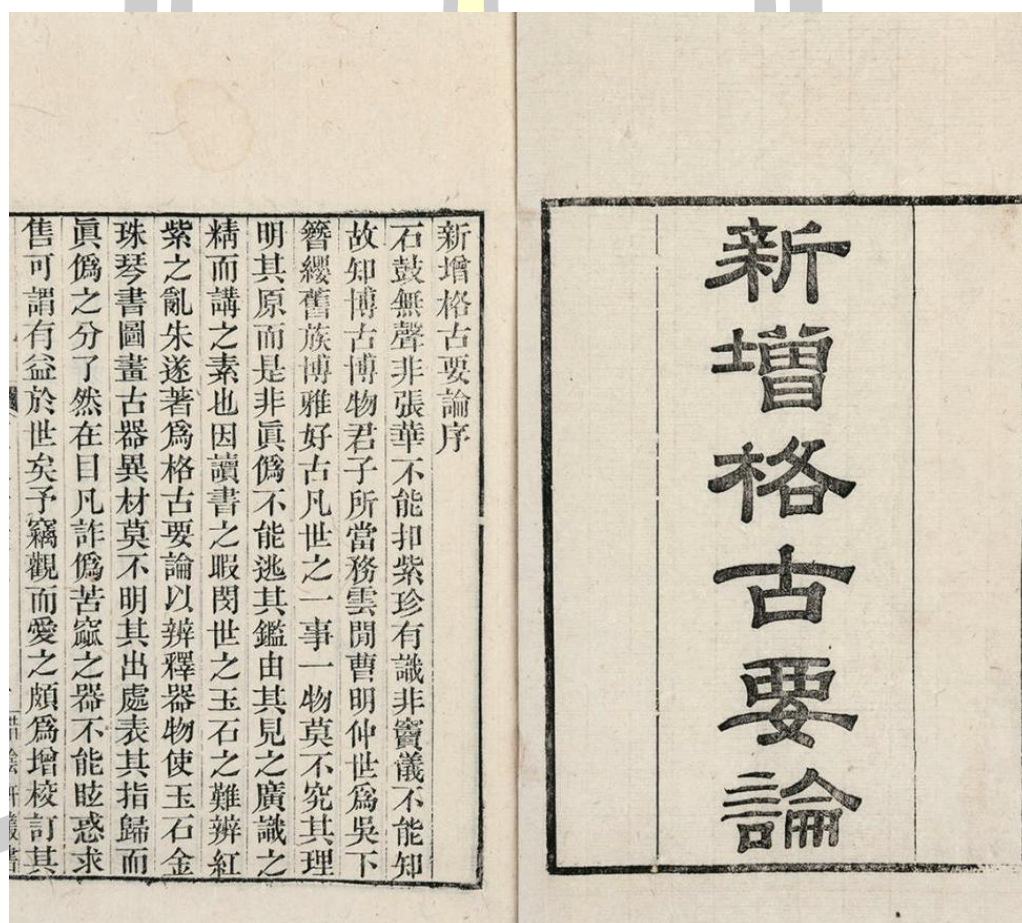 新增格古要論
新增格古要論序
石鼓無聲非張華不能扣紫珍有識非竇儀不能知
故知博古博物君子所當務雲閒曹明仲世爲吳下
簪纓舊族博雅好古凡世之一事一物莫不究其理
明其原而是非眞僞不能逃其鑑由其見之廣識之
精而講之素也因讀書之暇閔世之玉石之難辨紅
紫之亂朱遂著爲格古要論以辨釋器物使玉石金
珠琴書圖畫古器異材莫不明其出處表其指歸而
眞僞之分了然在目凡詐僞苦窳之器不能眩惑求
售可謂有益於世矣予竊觀而愛之頗爲增校訂其